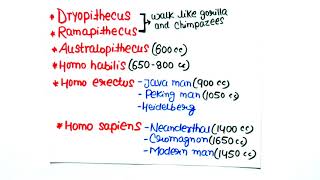 * Dryopithecus
* Ramapithecus
walk like gorilla
and chimpazees
* Australopithecus (600 cc)
* Homo habilis (650-800 cc)
* Homo erectus - Java man (900 cc)
- Peking man (1050 cc)
- Heidelberg
* Homo sapiens - Neanderthal (1400 cc)
- Cromagnon (1650 cc)
- Modern man (1450 cc)